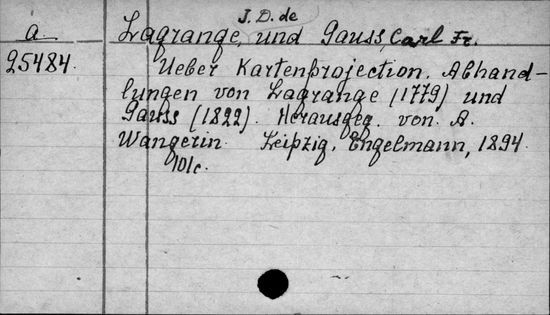 J. D. de
a
Lagrange, und Gauss, Carl Fr.
25484.
Ueber Kartenprojection. Abhand-
lungen von Lagrange (1779) und
Gauss (1822). Herausgeg. von. A.
Wangerin. Leipzig, Engelmann, 1894.
101c.